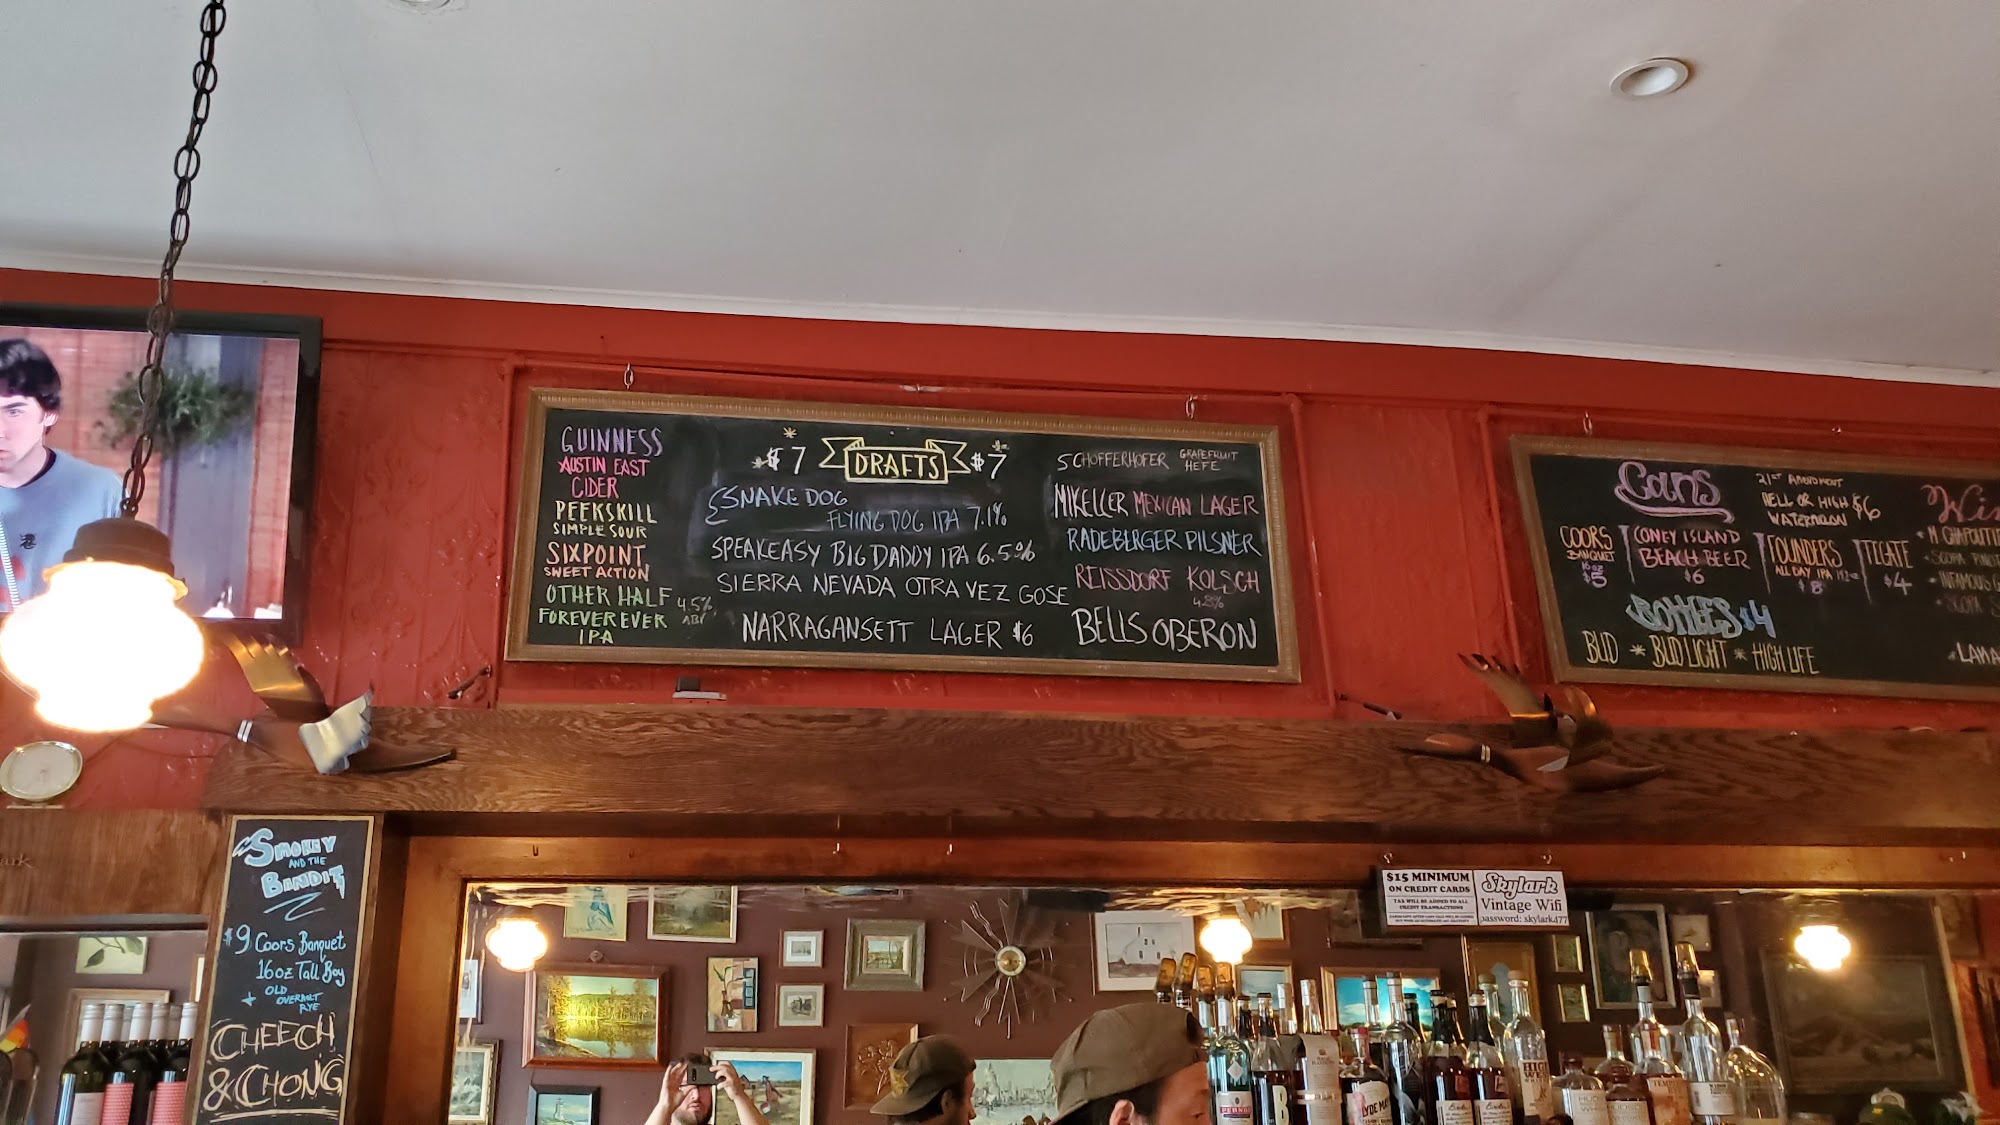 GUINNESS
AUSTIN EAST
CIDER
PEEKSKILL
SIMPLE SOUR
SIXPOINT
SWEET ACTION
OTHER HALF
FOREVER EVER
IPA
4.5%
ABV
$7 DRAFTS $7
SNAKE DOG
FLYING DOG IPA 7.1%
SPEAKEASY BIG DADDY IPA 6.5%
SIERRA NEVADA OTRA VEZ GOSE
NARRAGANSETT LAGER $6
SCHOFFERHOFER GRAPEFRUIT
HEFE
MIKELLER MEXICAN LAGER
RADEBERGER PILSNER
REISSDORF KOLSCH
4.8%
BELLS OBERON
Cans
21ST AMENDMENT
HELL OR HIGH $6
WATERMELON
COORS
BANQUET
16oz
$5
CONEY ISLAND
BEACH BEER
$6
FOUNDERS
ALL DAY IPA
$8
TECATE
$4
BOTTLES $4
BUD * BUD LIGHT * HIGH LIFE
SMOKEY
AND THE
BANDIT
$9 Coors Banquet
16oz Tall Boy
+ OLD
OVERHOLT
RYE
CHEECH
& CHONG
$15 MINIMUM
ON CREDIT CARDS
TAX WILL BE ADDED TO ALL
CREDIT TRANSACTIONS
Skylark
Vintage Wifi
password: skylark477